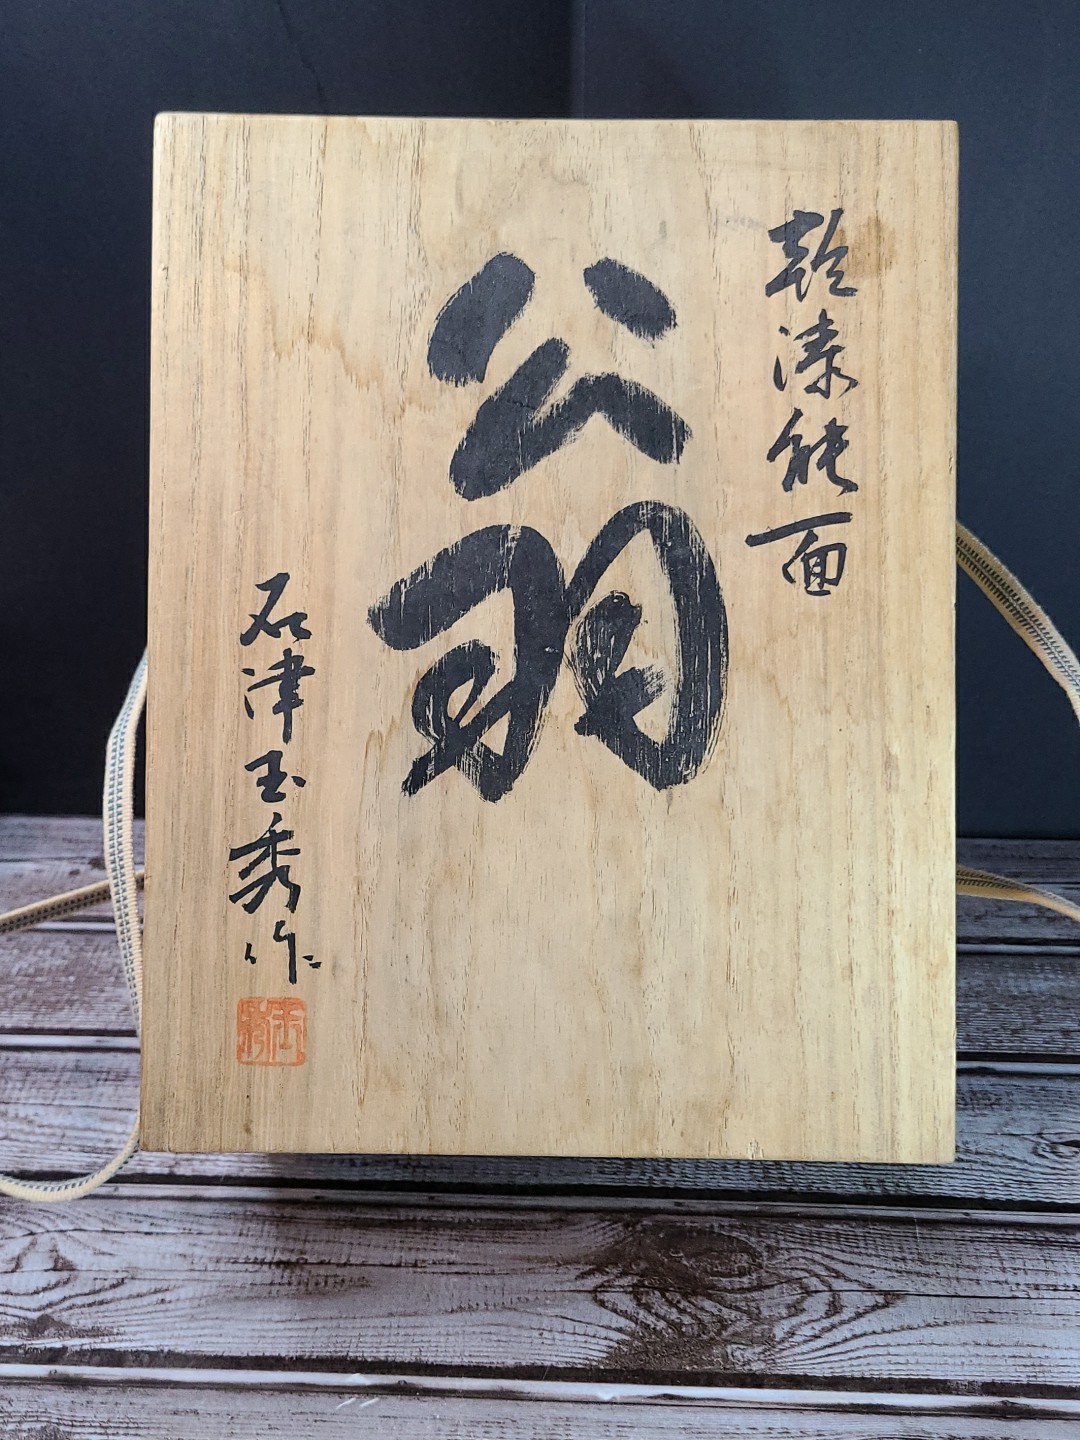 乾漆能面
翁
石津玉秀作
玉秀